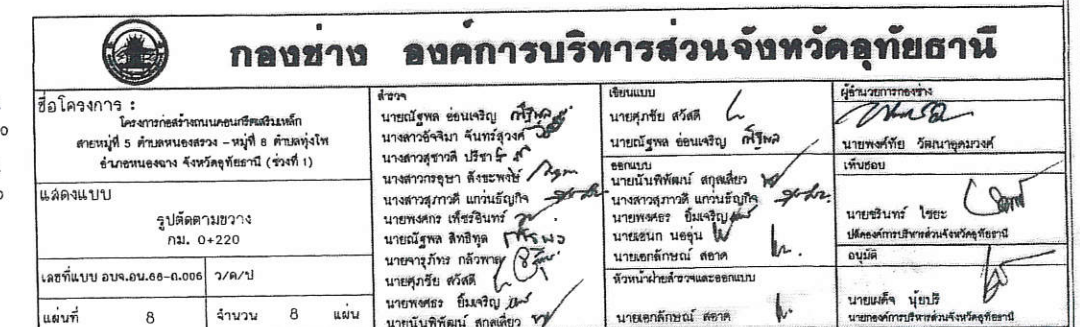 กองช่าง องค์การบริหารส่วนจังหวัดอุทัยธานี
ชื่อโครงการ :
โครงการก่อสร้างถนนคอนกรีตเสริมเหล็ก
สายหมู่ที่ 5 ตำบลหนองสรวง - หมู่ที่ 8 ตำบลทุ่งโพ
อำเภอหนองฉาง จังหวัดอุทัยธานี (ช่วงที่ 1)
แสดงแบบ
รูปตัดตามขวาง
กม. 0+220
เลขที่แบบ อบจ.อน.66-ถ.006 ว/ด/ป
แผ่นที่ 8 จำนวน 8 แผ่น
สำรวจ
นายณัฐพล อ่อนเจริญ
นางสาวอัจจิมา จันทร์สุวงค์
นางสาวสุชาวดี ปรีชา
นางสาวกรอุษา ลังชะพงษ์
นางสาวสุภาวดี แก่วนธัญกิจ
นายพงศกร เพ็ชรอินทร์
นายณัฐพล สิทธิทูล
นายจารุภัทร กลัวพาย
นายศุภชัย สวัสดี
นายพงศธร ยิ้มเจริญ
นายนันทิพัฒน์ สกุลเสี่ยว
เขียนแบบ
นายศุภชัย สวัสดี
นายณัฐพล อ่อนเจริญ
ออกแบบ
นายนันทิพัฒน์ สกุลเสี่ยว
นางสาวสุภาวดี แก่วนธัญกิจ
นายพงศธร ยิ้มเจริญ
นายเอนก นออุ่น
นายเอกลักษณ์ สอาด
หัวหน้าฝ่ายสำรวจและออกแบบ
นายเอกลักษณ์ สอาด
ผู้อำนวยการกองช่าง
นายพงศ์ทัย วัฒนาอุดมวงศ์
เห็นชอบ
นายชรินทร์ ไชยะ
ปลัดองค์การบริหารส่วนจังหวัดอุทัยธานี
อนุมัติ
นายเผด็จ นุ้ยปรี
นายกองค์การบริหารส่วนจังหวัดอุทัยธานี